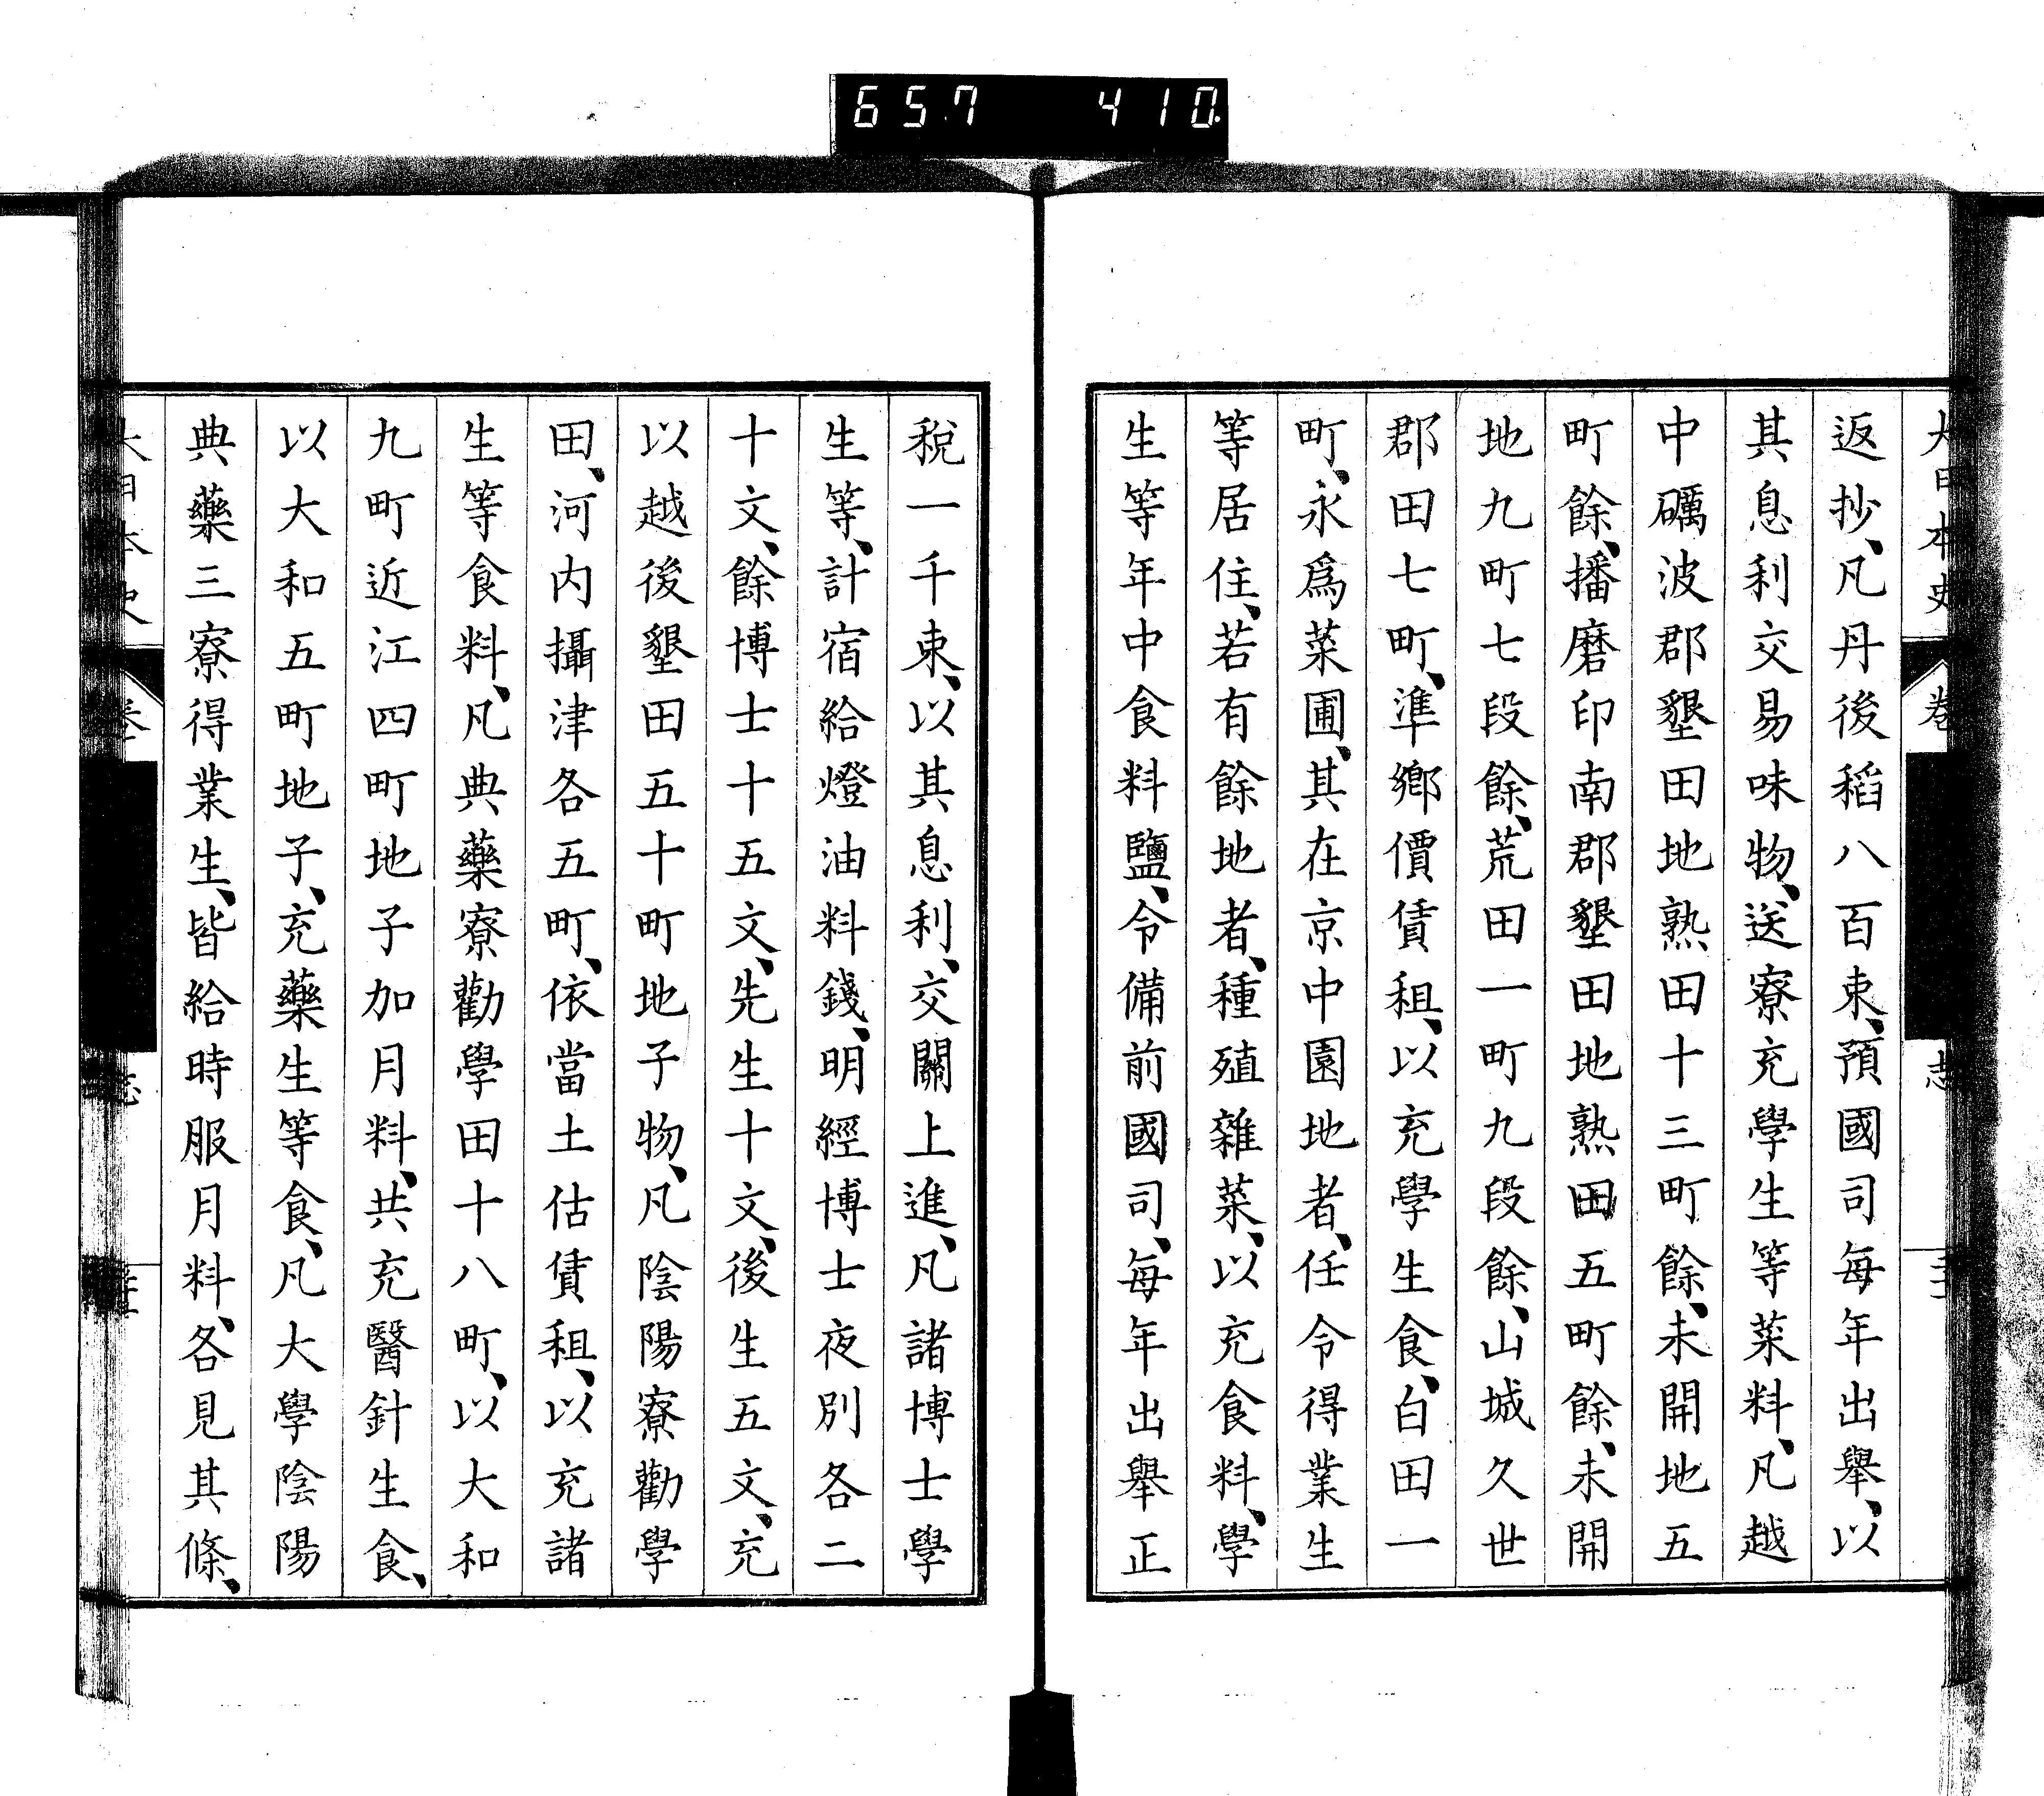 657 410
大日本史 卷 志
返抄、凡丹後稻八百束、預國司每年出舉、以
其息利交易味物、送寮充學生等菜料、凡越
中礪波郡墾田地熟田十三町餘、未開地五
町餘、播磨印南郡墾田地熟田五町餘、未開
地九町七段餘、荒田一町九段餘、山城久世
郡田七町、準鄉價賃租、以充學生食、白田一
町、永爲菜圃、其在京中園地者、任令得業生
等居住、若有餘地者、種殖雜菜、以充食料、學
生等年中食料鹽、令備前國司、每年出舉正
稅一千束、以其息利、交關上進、凡諸博士學
生等、計宿給燈油料錢、明經博士夜別各二
十文、餘博士十五文、先生十文、後生五文、充
以越後墾田五十町地子物、凡陰陽寮勸學
田、河内攝津各五町、依當土估賃租、以充諸
生等食料、凡典藥寮勸學田十八町、以大和
九町近江四町地子加月料、共充醫針生食、
以大和五町地子、充藥生等食、凡大學陰陽
典藥三寮得業生、皆給時服月料、各見其條、
大日本史 卷 志